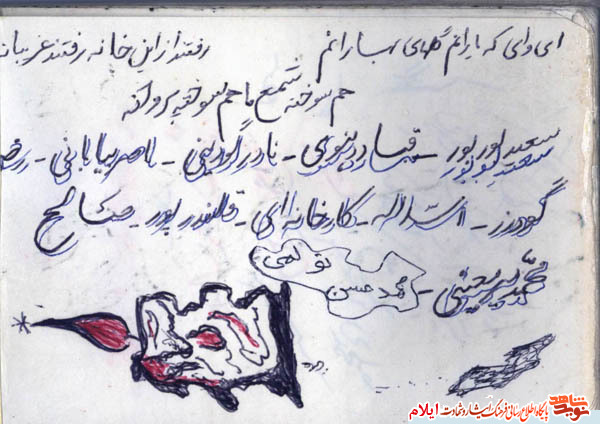 ای وای که یارانم گلهای بهارانم رفتند از این خانه رفتند غریبان
هم سوخته شمع ما هم سوخته پروانه
سعید پور - قباد - نادر - ناصر بیابانی -
گودرز - اسداله - کارخانه‌ای - قلندر پور - صالح
محمد
محمد حسن
نوید شاهد پایگاه اطلاع رسانی فرهنگ ایثار و شهادت ایلام